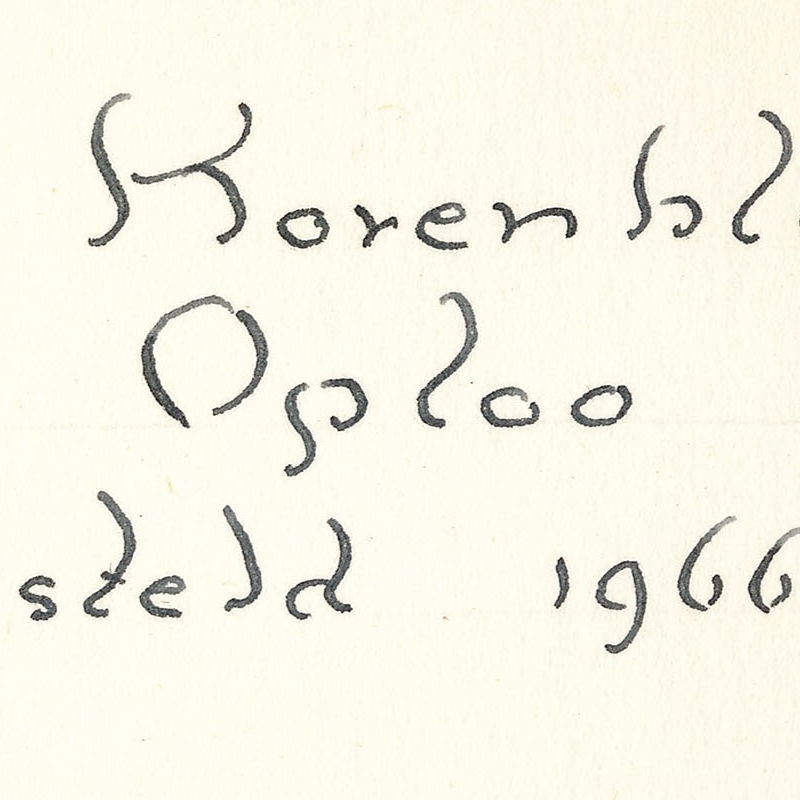 Korenbl
Oploo
steld 1966